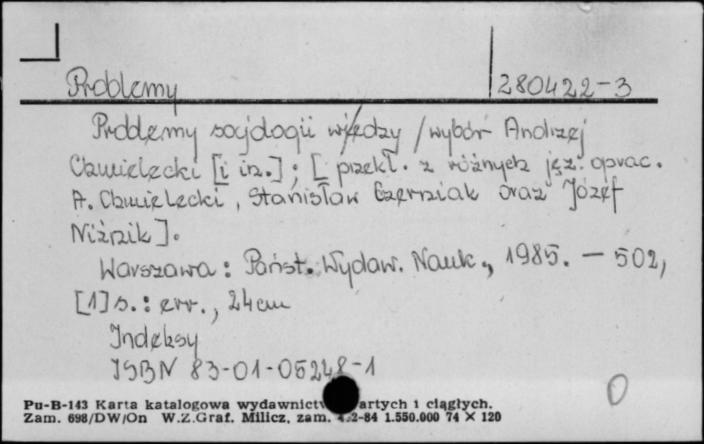 Problemy 280422-3
Problemy socjologii wiedzy / wybór Andrzej
Chmielecki [i in.] ; [przekł. z różnych jęz. oprac.
A. Chmielecki, Stanisław Czerniak oraz Józef
Niżnik].
Warszawa : Państ. Wydaw. Nauk., 1985. - 502,
[1] s. : err., 24 cm
Indeksy
ISBN 83-01-05248-1
0
Pu-B-143 Karta katalogowa wydawnictw artych i ciągłych.
Zam. 698/DW/On W.Z.Graf. Milicz, zam. 2-84 1.550.000 74 X 120